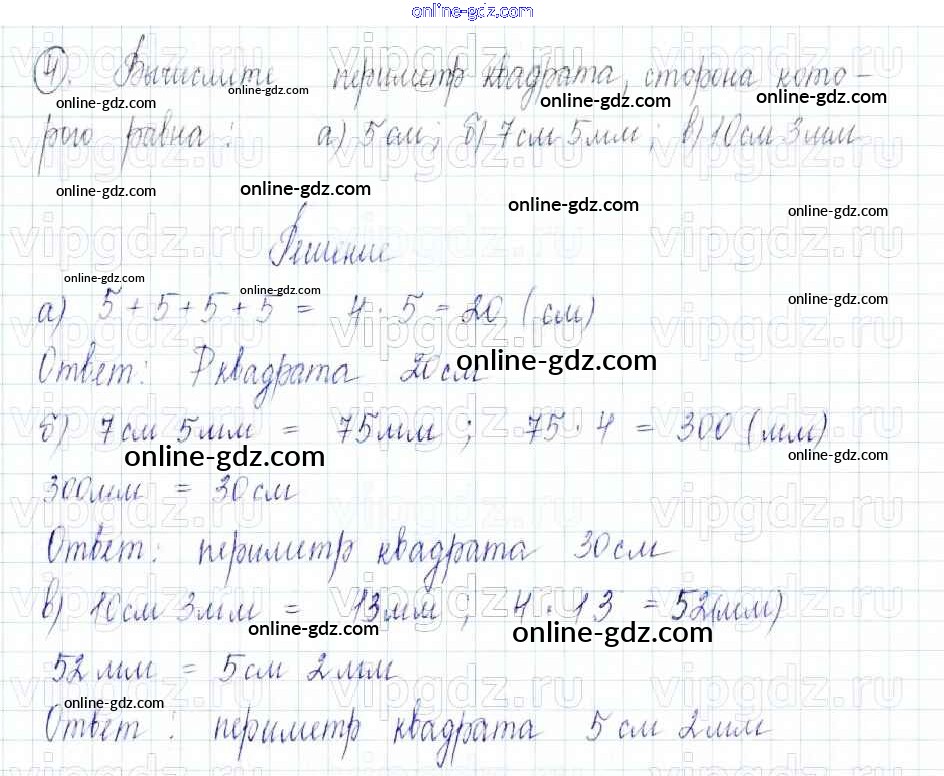 online-gdz.com
4). Вычислите периметр квадрата, сторона кото-
online-gdz.com online-gdz.com online-gdz.com online-gdz.com
рого равна: а) 5 см; б) 7 см 5 мм; в) 10 см 3 мм
online-gdz.com online-gdz.com online-gdz.com online-gdz.com
vipgdz.ru vipgdz.ru vipgdz.ru
Решение
online-gdz.com online-gdz.com online-gdz.com
а) 5 + 5 + 5 + 5 = 4 · 5 = 20 (см)
Ответ: P квадрата 20 см
online-gdz.com
б) 7 см 5 мм = 75 мм; 75 · 4 = 300 (мм)
online-gdz.com online-gdz.com
300 мм = 30 см
Ответ: периметр квадрата 30 см
в) 10 см 3 мм = 13 мм; 4 · 13 = 52 (мм)
online-gdz.com online-gdz.com
52 мм = 5 см 2 мм
online-gdz.com
Ответ: периметр квадрата 5 см 2 мм